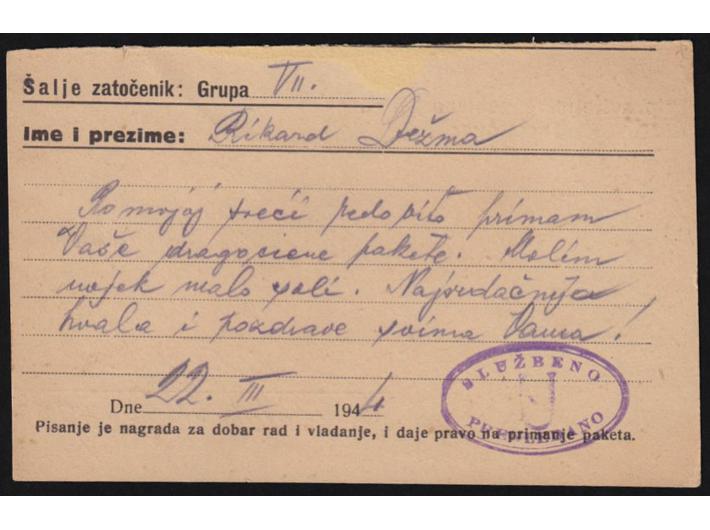 Šalje zatočenik: Grupa VII.
Ime i prezime: Rikard Dežma
Po mojoj sreći redovito primam
Vaše dragocjene pakete. Molim
uvjek malo soli. Najsrdačnija
hvala i pozdrave svima Vama!
Dne 22. III 1944
Pisanje je nagrada za dobar rad i vladanje, i daje pravo na primanje paketa.
SLUŽBENO
U
PREGLEDANO